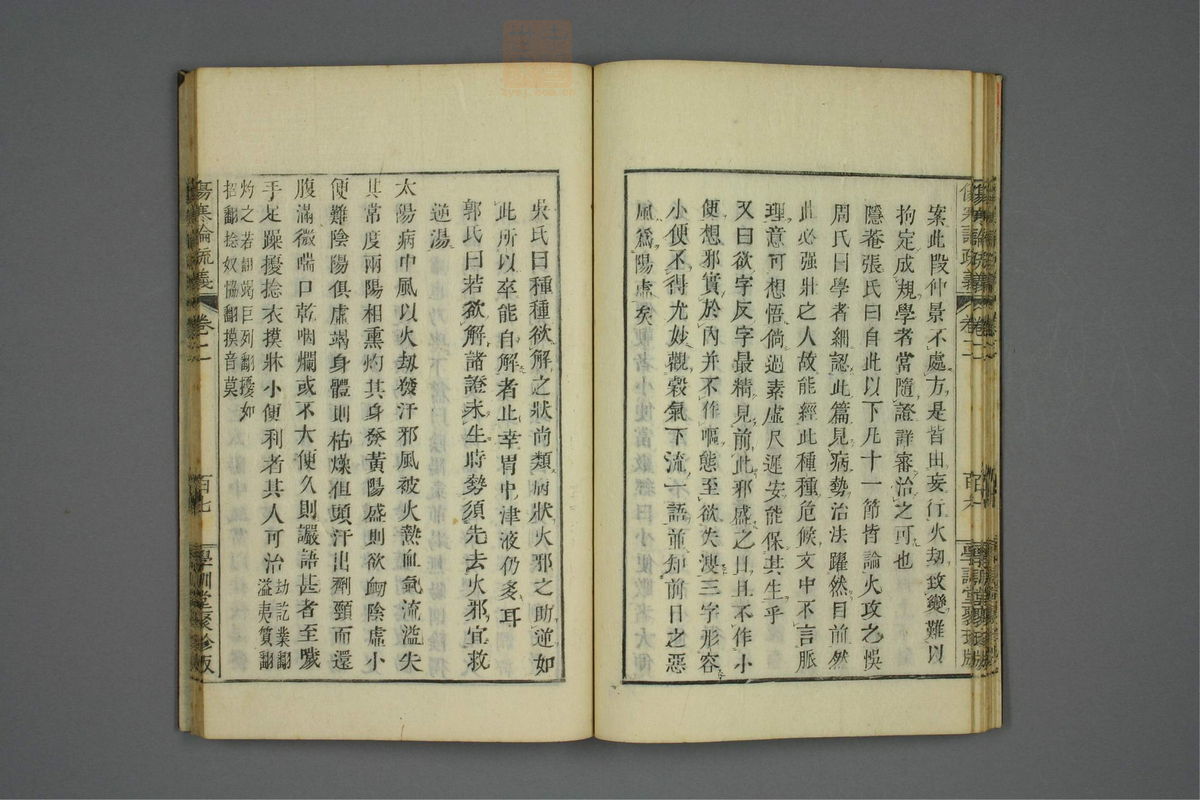 案此段仲景不處方是皆由妄行火刼致變難以
拘定成規學者當隨證詳審治之可也
隱菴張氏曰自此以下凡十一節皆論火攻之悞
周氏曰學者細認此篇見病勢治法躍然目前然
此必强壯之人故能經此種種危候文中不言脈
理意可想悟倘過素虛尺遲安能保其生乎
又曰欲字反字最精見前此邪盛之日且不作小
便想邪實於內并不作嘔態至欲失溲三字形容
小便不得尤妙觀穀氣下流一語並知前日之惡
風爲陽虛矣
傷寒論疏義
卷二
百六
學訓堂聚珍版
吳氏曰種種欲解之狀尚類病狀火邪之助逆如
此所以卒能自解者止幸胃中津液仍多耳
郭氏曰若欲解諸證未生時勢須先去火邪宜救
逆湯
太陽病中風以火刼發汗邪風被火熱血氣流溢失
其常度兩陽相熏灼其身發黃陽盛則欲衄陰虛小
便難陰陽俱虛竭身體則枯燥但頭汗出劑頸而還
腹滿微喘口乾咽爛或不大便久則讝語甚者至噦
手足躁擾捻衣摸牀小便利者其人可治
刼訖業翻
溢夷質翻
灼之若翻竭巨列翻擾如
招翻捻奴協翻摸音莫
傷寒論疏義
卷二
百七
學訓堂聚珍版